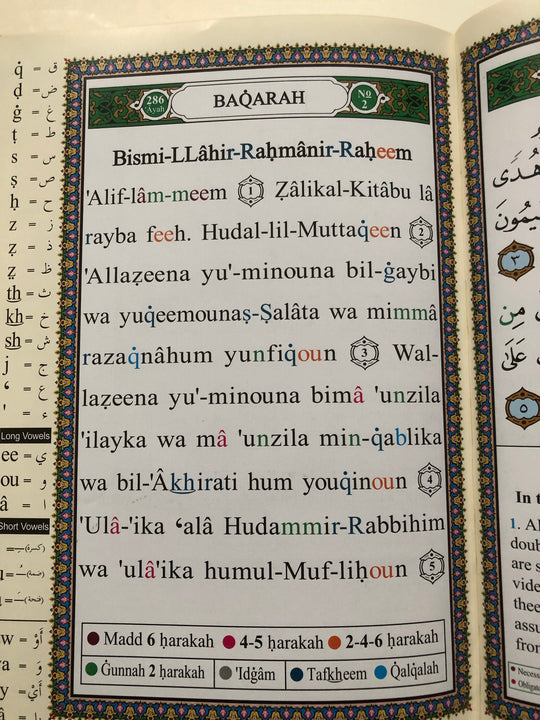 q̇ = ق
ḍ = ض
ġ = غ
ṭ = ط
s = س
ṣ = ص
ḥ = ح
z = ز
ẓ = ذ
ẓ = ظ
th = ث
kh = خ
sh = ش
j = ج
‘ = ع
' = ء
Long Vowels
ee = ي
ou = و
â = ا
Short Vowels
(كسرة)
(ضمة)
(فتحة)
aw = أَوْ
وَ
أَيْ
286
'Ayah
BAQ̇ARAH
No
2
Bismi-LLâhir-Raḥmânir-Raḥeem
'Alif-lâm-meem 1 Ẓâlikal-Kitâbu lâ
rayba feeh. Hudal-lil-Muttaq̇een 2
'Allaẓeena yu'-minouna bil-ġaybi
wa yuq̇eemounaṣ-Ṣalâta wa mimmâ
razaq̇nâhum yunfiq̇oun 3 Wal-
laẓeena yu'-minouna bimâ 'unzila
'ilayka wa mâ 'unzila min-q̇ablika
wa bil-'Âkhirati hum youq̇inoun 4
'Ulâ-'ika ‘alâ Hudammir-Rabbihim
wa 'ulâ'ika humul-Muf-liḥoun 5
Madd 6 ḥarakah 4-5 ḥarakah 2-4-6 ḥarakah
Ġunnah 2 ḥarakah 'Idġâm Tafkheem Q̇alq̇alah
هُدًى
٣
مِن
عَلَىٰ
٥
In t
1. Al
doub
are s
vide
thee
assu
fron
Necess
Obligato